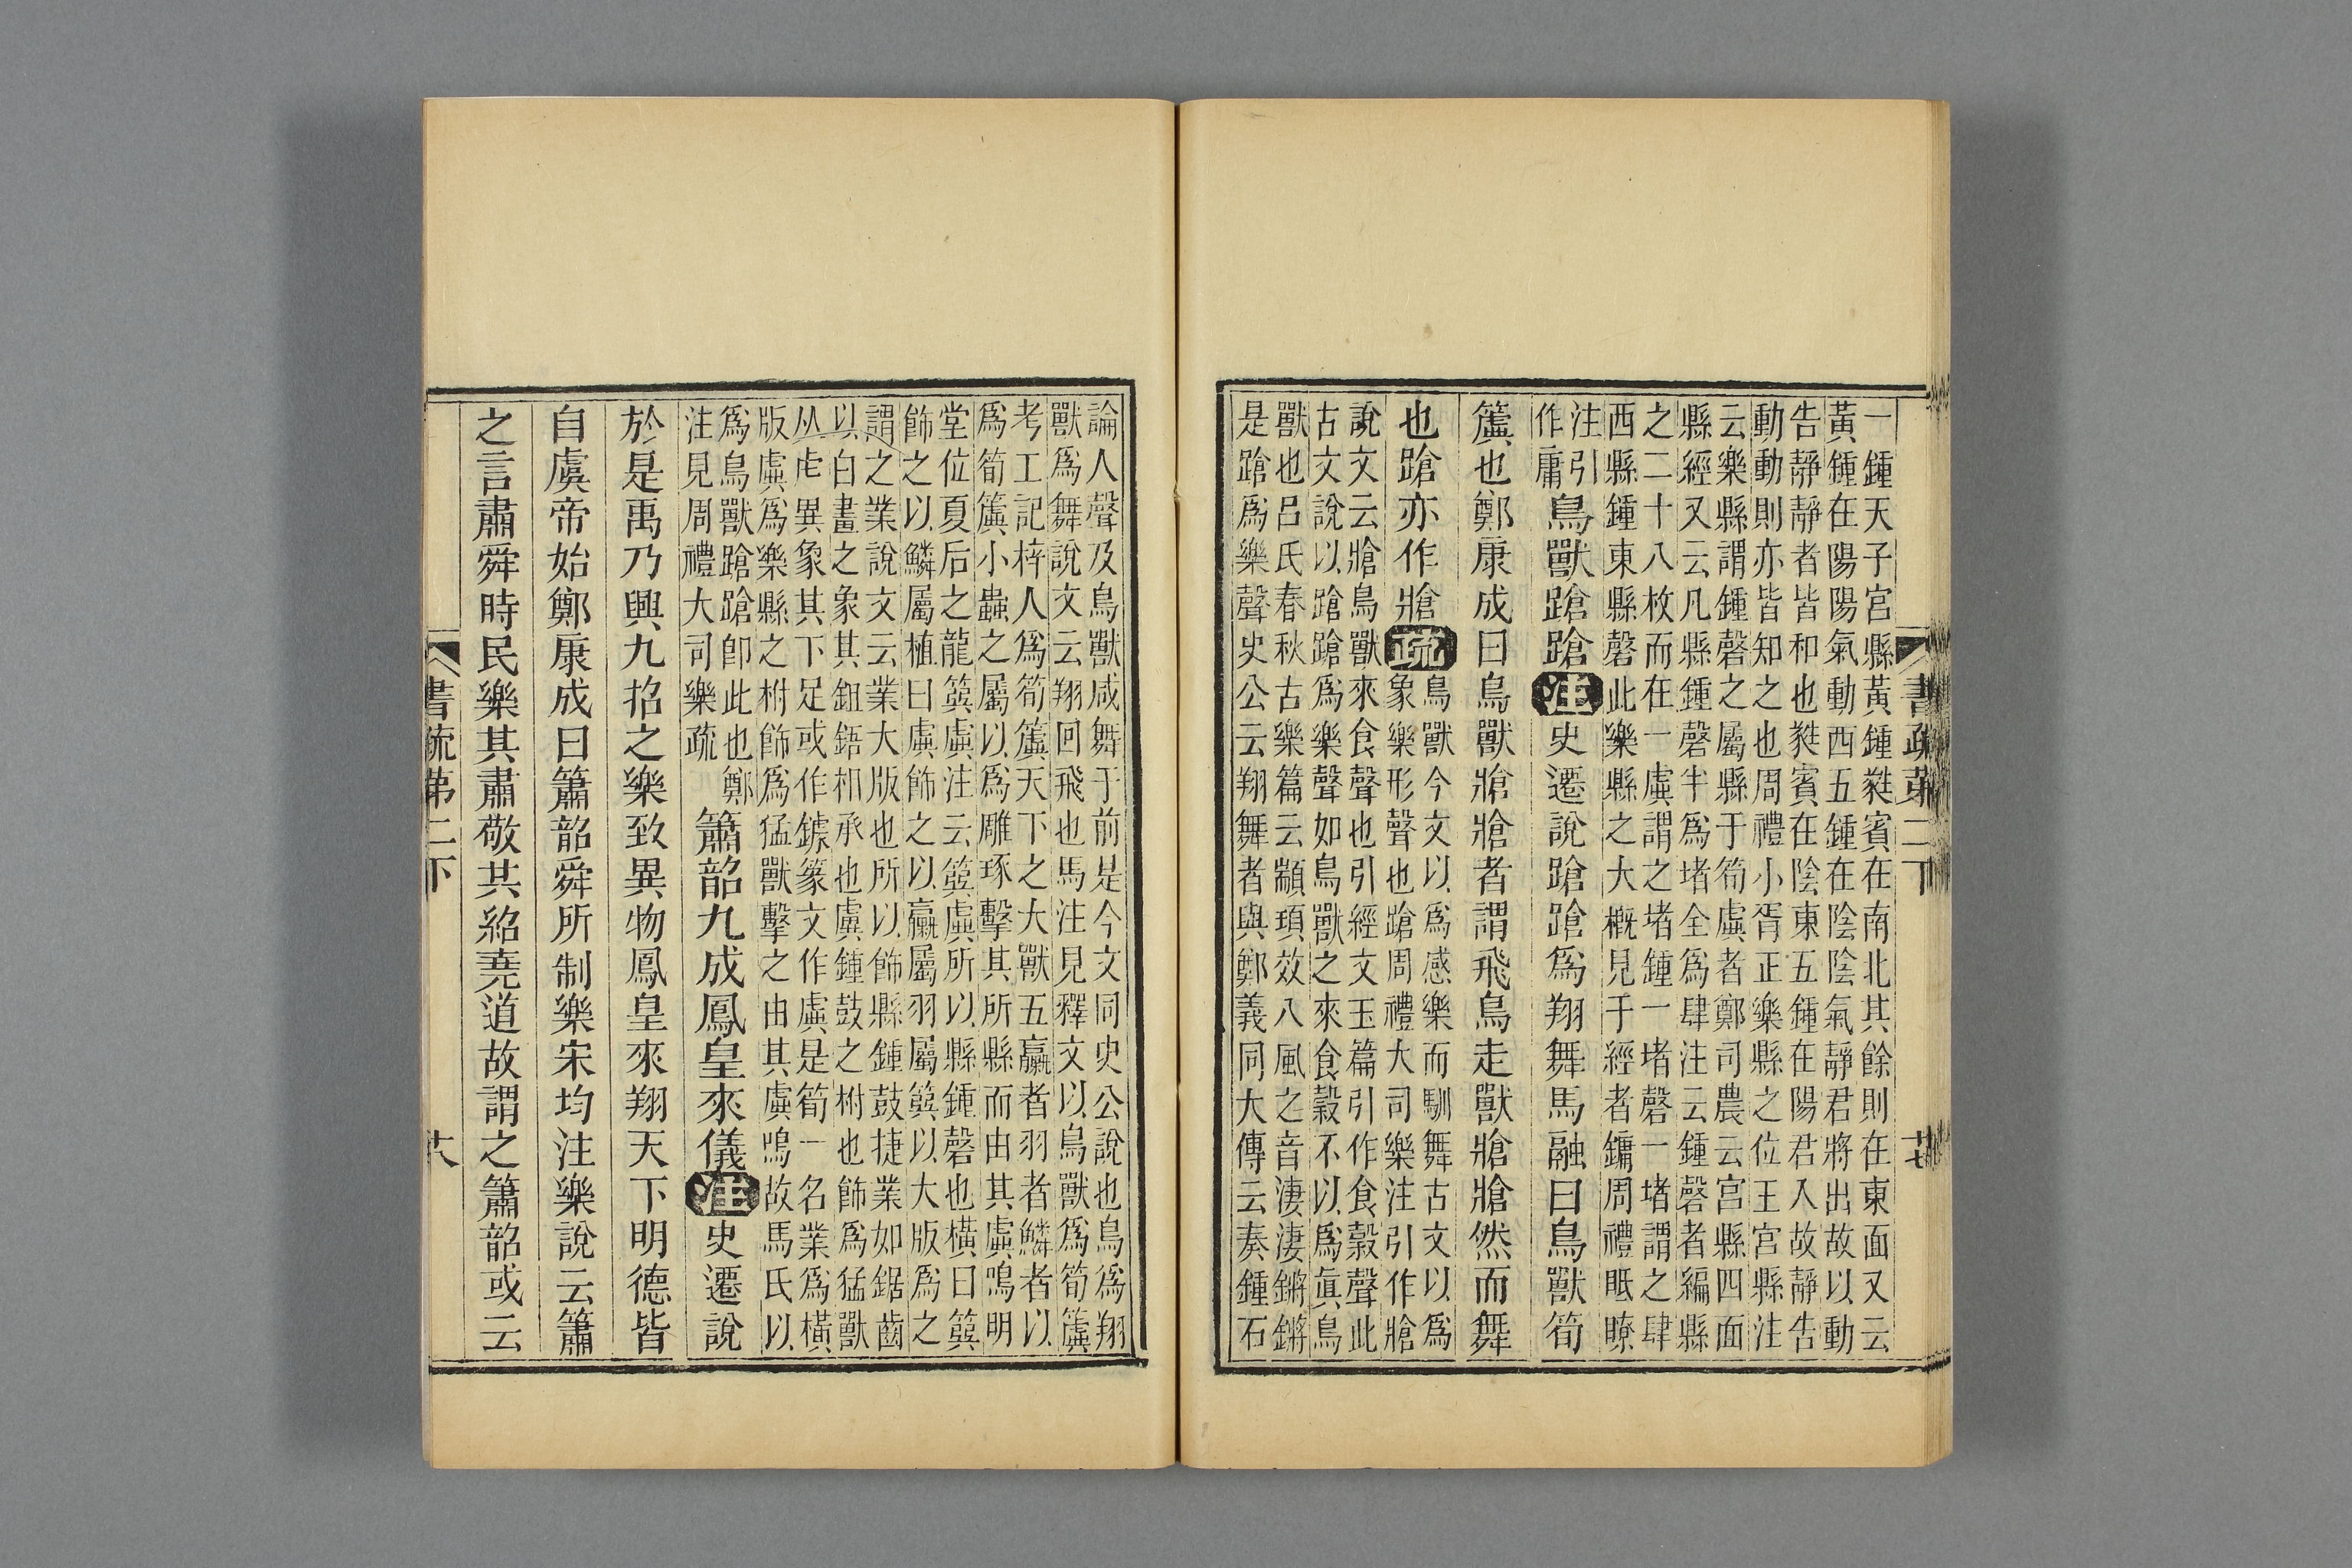 一鍾天子宮縣黃鍾蕤賓在南北其餘則在東面又云
黃鍾在陽陽氣動西五鍾在陰陰氣靜君將出故以動
告靜靜者皆和也蕤賓在陰東五鍾在陽君入故靜告
動動則亦皆知之也周禮小胥正樂縣之位王宮縣注
云樂縣謂鍾磬之屬縣于筍虡者鄭司農云宮縣四面
縣經又云凡縣鍾磬半為堵全為肆注云鍾磬者編縣
之二十八枚而在一虡謂之堵鍾一堵磬一堵謂之肆
西縣鍾東縣磬此樂縣之大概見于經者鏞周禮眡瞭
注引
作庸
鳥獸蹌蹌注史遷說蹌蹌為翔舞馬融曰鳥獸筍
簴也鄭康成曰鳥獸牄牄者謂飛鳥走獸牄牄然而舞
也蹌亦作牄疏
鳥獸今文以為感樂而馴舞古文以為
象樂形聲也蹌周禮大司樂注引作牄
說文云牄鳥獸來食聲也引經文玉篇引作食穀聲此
古文說以蹌蹌為樂聲如鳥獸之來食穀不以為真鳥
獸也呂氏春秋古樂篇云顓頊效八風之音淒淒鏘鏘
是蹌為樂聲史公云翔舞者與鄭義同大傳云奏鍾石
書疏第二下
廿七
論人聲及鳥獸咸舞于前是今文同史公說也鳥為翔
獸為舞說文云翔回飛也馬注見釋文以鳥獸為筍簴
考工記梓人為筍簴天下之大獸五臝者羽者鱗者以
為筍簴小蟲之屬以為雕琢擊其所縣而由其虡鳴明
堂位夏后之龍簨虡注云簨虡所以縣鍾磬也橫曰簨
飾之以鱗屬植曰虡飾之以臝屬羽屬簨以大版為之
謂之業說文云業大版也所以飾縣鍾鼓捷業如鋸齒
以白畫之象其鉏鋙相承也虡鍾鼓之柎也飾為猛獸
从虍異象其下足或作鐻篆文作虡是筍一名業為橫
版虡為樂縣之柎飾為猛獸擊之由其虡鳴故馬氏以
為鳥獸蹌蹌即此也鄭
注見周禮大司樂疏
簫韶九成鳳皇來儀注史遷說
於是禹乃興九招之樂致異物鳳皇來翔天下明德皆
自虞帝始鄭康成曰簫韶舜所制樂宋均注樂說云簫
之言肅舜時民樂其肅敬其紹堯道故謂之簫韶或云
書疏第二下